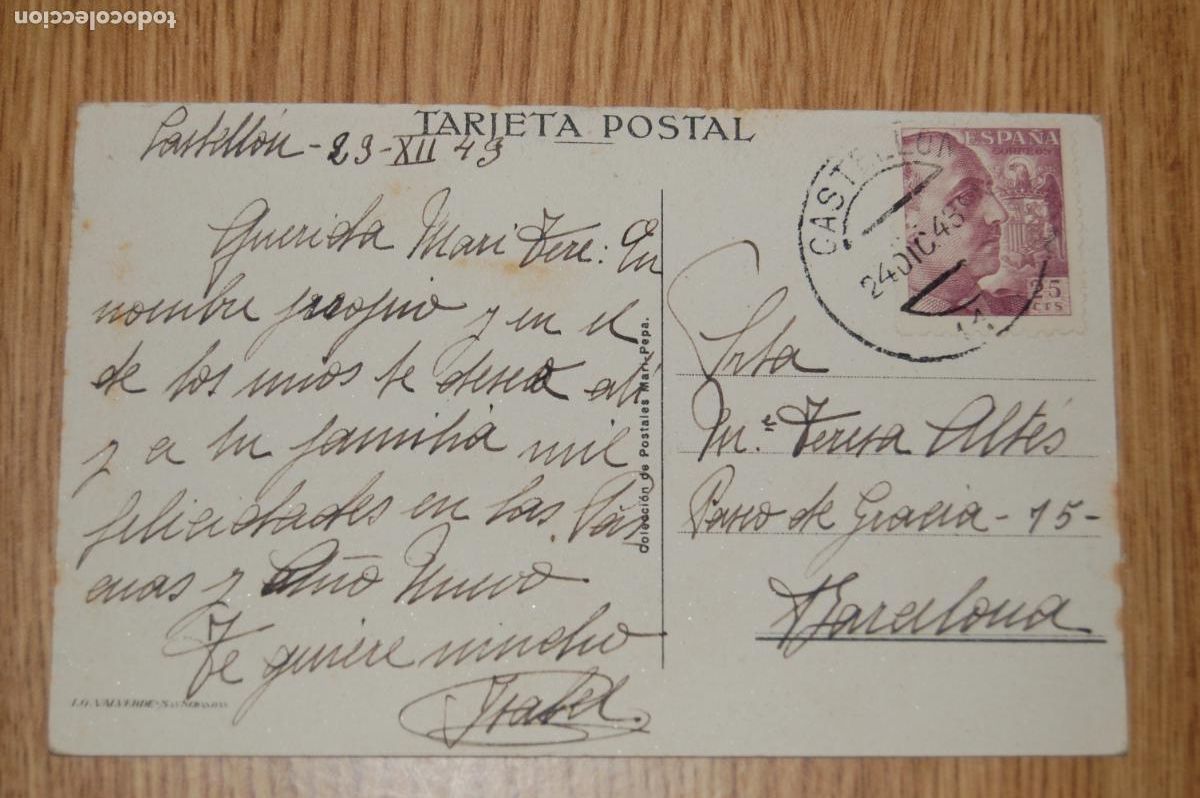 todocoleccion
TARJETA POSTAL
Castellón - 23 - XII 43
Querida Mari Tere: En
nombre propio y en el
de los mios te deseo a ti
y a tu familia mil
felicidades en las Pas
cuas y Año Nuevo
Te quiere mucho
Isabel.
I.G. VALVERDE - SAN SEBASTIAN
Colección de Postales Mari-Pepa.
ESPAÑA
CORREOS
25
CTS
CASTELLON
24 DIC. 43
Srta
Mª Teresa Altés
Paseo de Gracia - 15 -
Barcelona